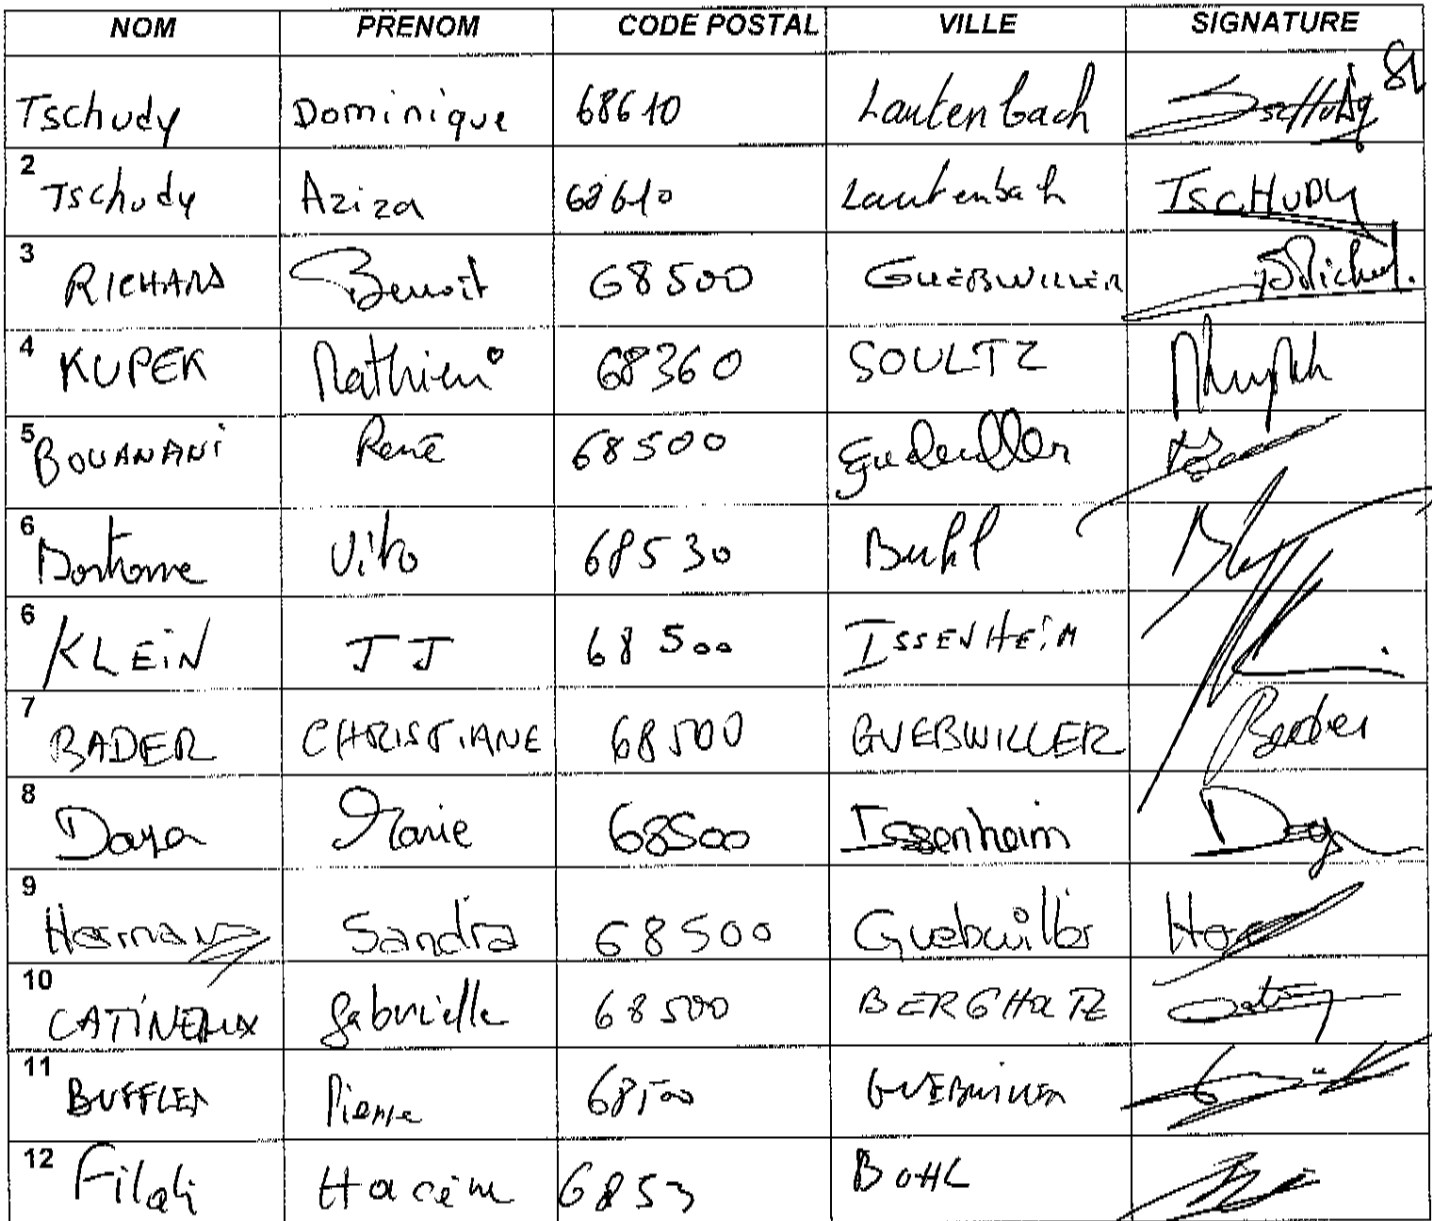 NOM PRENOM CODE POSTAL VILLE SIGNATURE
Tschudy Dominique 68610 Lautenbach Tschudy
2 Tschudy Aziza 68610 Lautenbach TSCHUDY
3 RICHARD Benoit 68500 GUEBWILLER
4 KUPEK Mathieu 68360 SOULTZ
5 BOUANANI René 68500
6 Vito 68530 Buhl
6 KLEiN JJ 68500 ISSENHEiM
7 BADER CHRISTIANE 68500 GUEBWILLER Bader
8 Daya Marie 68500 Issenheim
9 Sandra 68500 Guebwiller
10 CATINEAUX Gabrielle 68500
11 BUFFLER Pierre 68500 GUEBWILLER
12 Filali Hacène 6853 BUHL